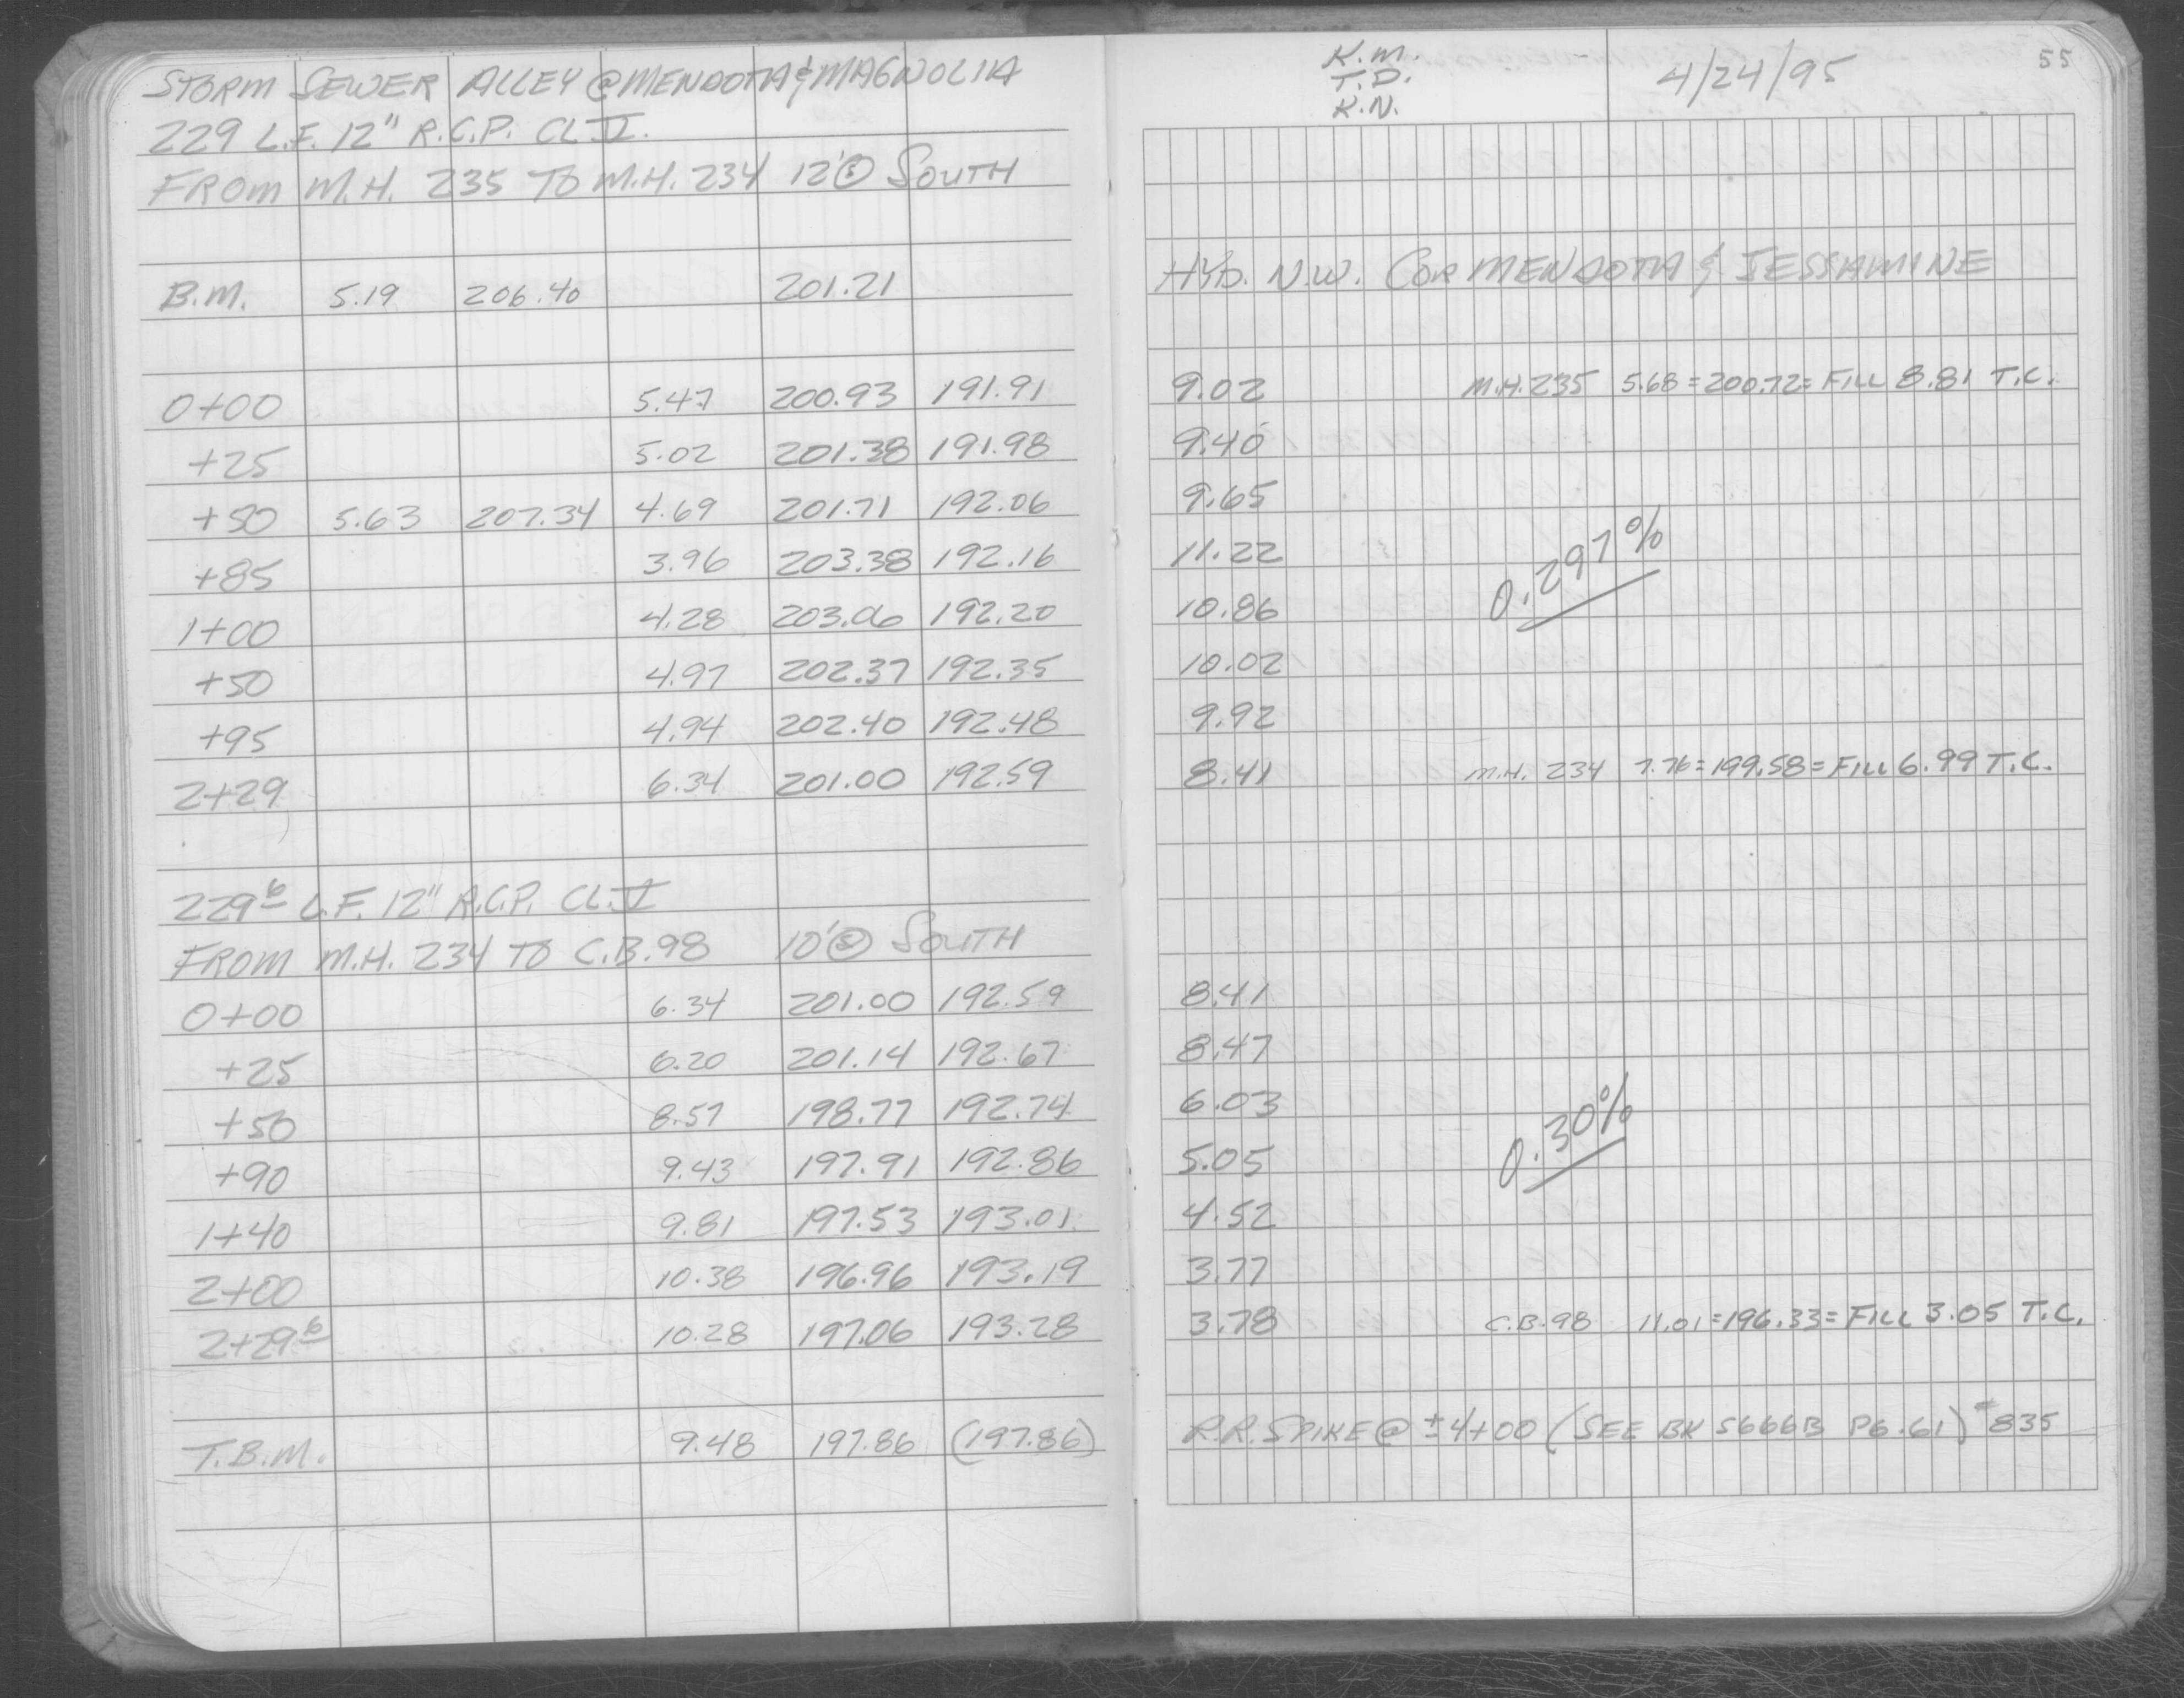 STORM SEWER ALLEY @ MENDOTA & MAGNOLIA
229 L.F. 12" R.C.P. CL V.
FROM M.H. 235 TO M.H. 234 12' O/S SOUTH
B.M. 5.19 206.40 201.21
0+00 5.47 200.93 191.91
+25 5.02 201.38 191.98
+50 5.63 207.34 4.69 201.71 192.06
+85 3.96 203.38 192.16
1+00 4.28 203.06 192.20
+50 4.97 202.37 192.35
+95 4.94 202.40 192.48
2+29 6.34 201.00 192.59
229⁶ L.F. 12" R.C.P. CL. V
FROM M.H. 234 TO C.B. 98 10' O/S SOUTH
0+00 6.34 201.00 192.59
+25 6.20 201.14 192.67
+50 8.57 198.77 192.74
+90 9.43 197.91 192.86
1+40 9.81 197.53 193.01
2+00 10.38 196.96 193.19
2+29⁶ 10.28 197.06 193.28
T.B.M. 9.48 197.86 (197.86)
K.M.
T.D.
K.N.
4/24/95
55
HYD. N.W. COR MENDOTA & JESSAMINE
9.02 M.H. 235 5.68 = 200.72 = FILL 8.81 T.C.
9.40
9.65
11.22
0.297%
10.86
10.02
9.92
8.41 M.H. 234 7.76 = 199.58 = FILL 6.99 T.C.
8.41
8.47
6.03
0.30%
5.05
4.52
3.77
3.78 C.B. 98 11.01 = 196.33 = FILL 3.05 T.C.
R.R. SPIKE @ ± 4+00 (SEE BK 5666B PG. 61) #835